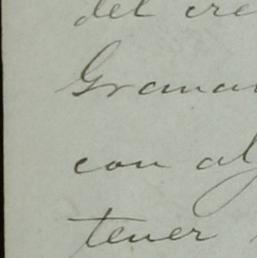 del cre
Grana
con al
tener